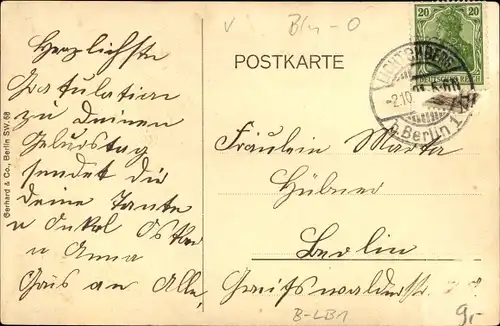 Herzlichste
Gratulation
zu Deinem
Geburtstag
sendet dir
deine Tante
u Onkel Oskar
u Anna
an Alle,
Gerhard & Co., Berlin SW. 68
V
Bln-O
POSTKARTE
20 20
DEUTSCHES
LICHTENBERG
-2.10.
b. Berlin 1
Fräulein Marta
Hübner
Berlin
Greifswalderstr.
B-LB1
9,-